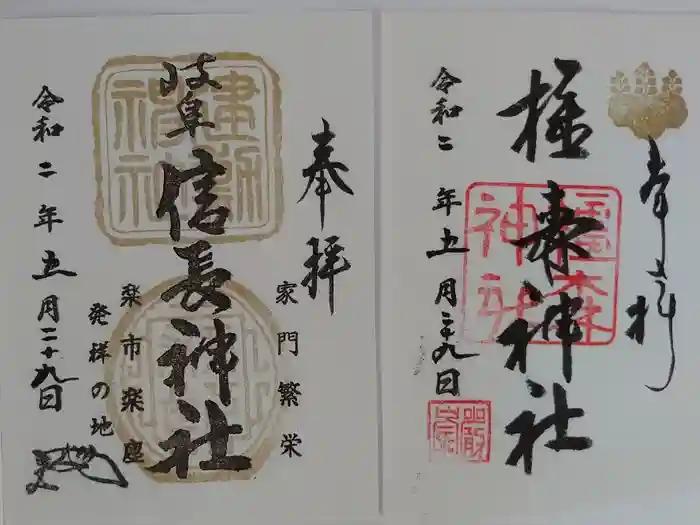 奉拝
橿森神社
令和二年五月二十九日
奉拝
家門繁栄
岐阜信長神社
楽市楽座
発祥の地
令和二年五月二十九日